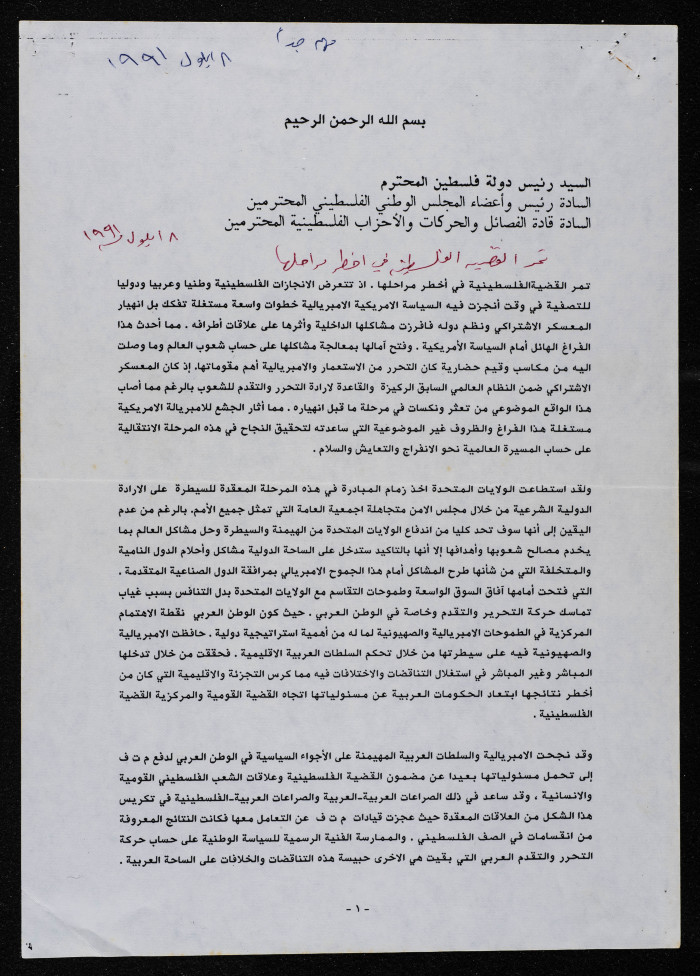 مهم جداً
٨ ايلول ١٩٩١
بسم الله الرحمن الرحيم
السيد رئيس دولة فلسطين المحترم
السادة رئيس وأعضاء المجلس الوطني الفلسطيني المحترمين
السادة قادة الفصائل والحركات والأحزاب الفلسطينية المحترمين
٨ ايلول ١٩٩١
تمر القضية الفلسطينية في اخطر مراحلها
تمر القضيةالفلسطينية في أخطر مراحلها . اذ تتعرض الانجازات الفلسطينية وطنيا وعربيا ودوليا
للتصفية في وقت أنجزت فيه السياسة الامريكية الامبريالية خطوات واسعة مستغلة تفكك بل انهيار
المعسكر الاشتراكي ونظم دوله فافرزت مشاكلها الداخلية وأثرها على علاقات أطرافه . مما أحدث هذا
الفراغ الهائل أمام السياسة الأمريكية . وفتح آمالها بمعالجة مشاكلها على حساب شعوب العالم وما وصلت
اليه من مكاسب وقيم حضارية كان التحرر من الاستعمار والامبريالية أهم مقوماتها. إذ كان المعسكر
الاشتراكي ضمن النظام العالمي السابق الركيزة والقاعدة لارادة التحرر والتقدم للشعوب بالرغم مما أصاب
هذا الواقع الموضوعي من تعثر ونكسات في مرحلة ما قبل انهياره . مما أثار الجشع للامبريالة الامريكية
مستغلة هذا الفراغ والظروف غير الموضوعية التي ساعدته لتحقيق النجاح في هذه المرحلة الانتقالية
على حساب المسيرة العالمية نحو الانفراج والتعايش والسلام .
ولقد استطاعت الولايات المتحدة اخذ زمام المبادرة في هذه المرحلة المعقدة للسيطرة على الارادة
الدولية الشرعية من خلال مجلس الامن متجاهلة اجمعية العامة التي تمثل جميع الأمم. بالرغم من عدم
اليقين إلى أنها سوف تحد كليا من اندفاع الولايات المتحدة من الهيمنة والسيطرة وحل مشاكل العالم بما
يخدم مصالح شعوبها وأهدافها إلا أنها بالتاكيد ستدخل على الساحة الدولية مشاكل وأحلام الدول النامية
والمتخلفة التي من شأنها طرح المشاكل أمام هذا الجموح الامبريالي بمرافقة الدول الصناعية المتقدمة .
التي فتحت أمامها آفاق السوق الواسعة وطموحات التقاسم مع الولايات المتحدة بدل التنافس بسبب غياب
تماسك حركة التحرير والتقدم وخاصة في الوطن العربي . حيث كون الوطن العربي نقطة الاهتمام
المركزية في الطموحات الامبريالية والصهيونية لما له من أهمية استراتيجية دولية . حافظت الامبريالية
والصهيونية فيه على سيطرتها من خلال تحكم السلطات العربية الاقليمية . فحققت من خلال تدخلها
المباشر وغير المباشر في استغلال التناقضات والاختلافات فيه مما كرس التجزئة والاقليمية التي كان من
أخطر نتائجها ابتعاد الحكومات العربية عن مسئولياتها اتجاه القضية القومية والمركزية القضية
الفلسطينية .
وقد نجحت الامبريالية والسلطات العربية المهيمنة على الأجواء السياسية في الوطن العربي لدفع م ت ف
إلى تحمل مسئولياتها بعيدا عن مضمون القضية الفلسطينية وعلاقات الشعب الفلسطيني القومية
والانسانية . وقد ساعد في ذلك الصراعات العربية-العربية والصراعات العربية-الفلسطينية في تكريس
هذا الشكل من العلاقات المعقدة حيث عجزت قيادات م ت ف عن التعامل معها فكانت النتائج المعروفة
من انقسامات في الصف الفلسطيني . والممارسة الفنية الرسمية للسياسة الوطنية على حساب حركة
التحرر والتقدم العربي التي بقيت هي الاخرى حبيسة هذه التناقضات والخلافات على الساحة العربية .
- ١ -